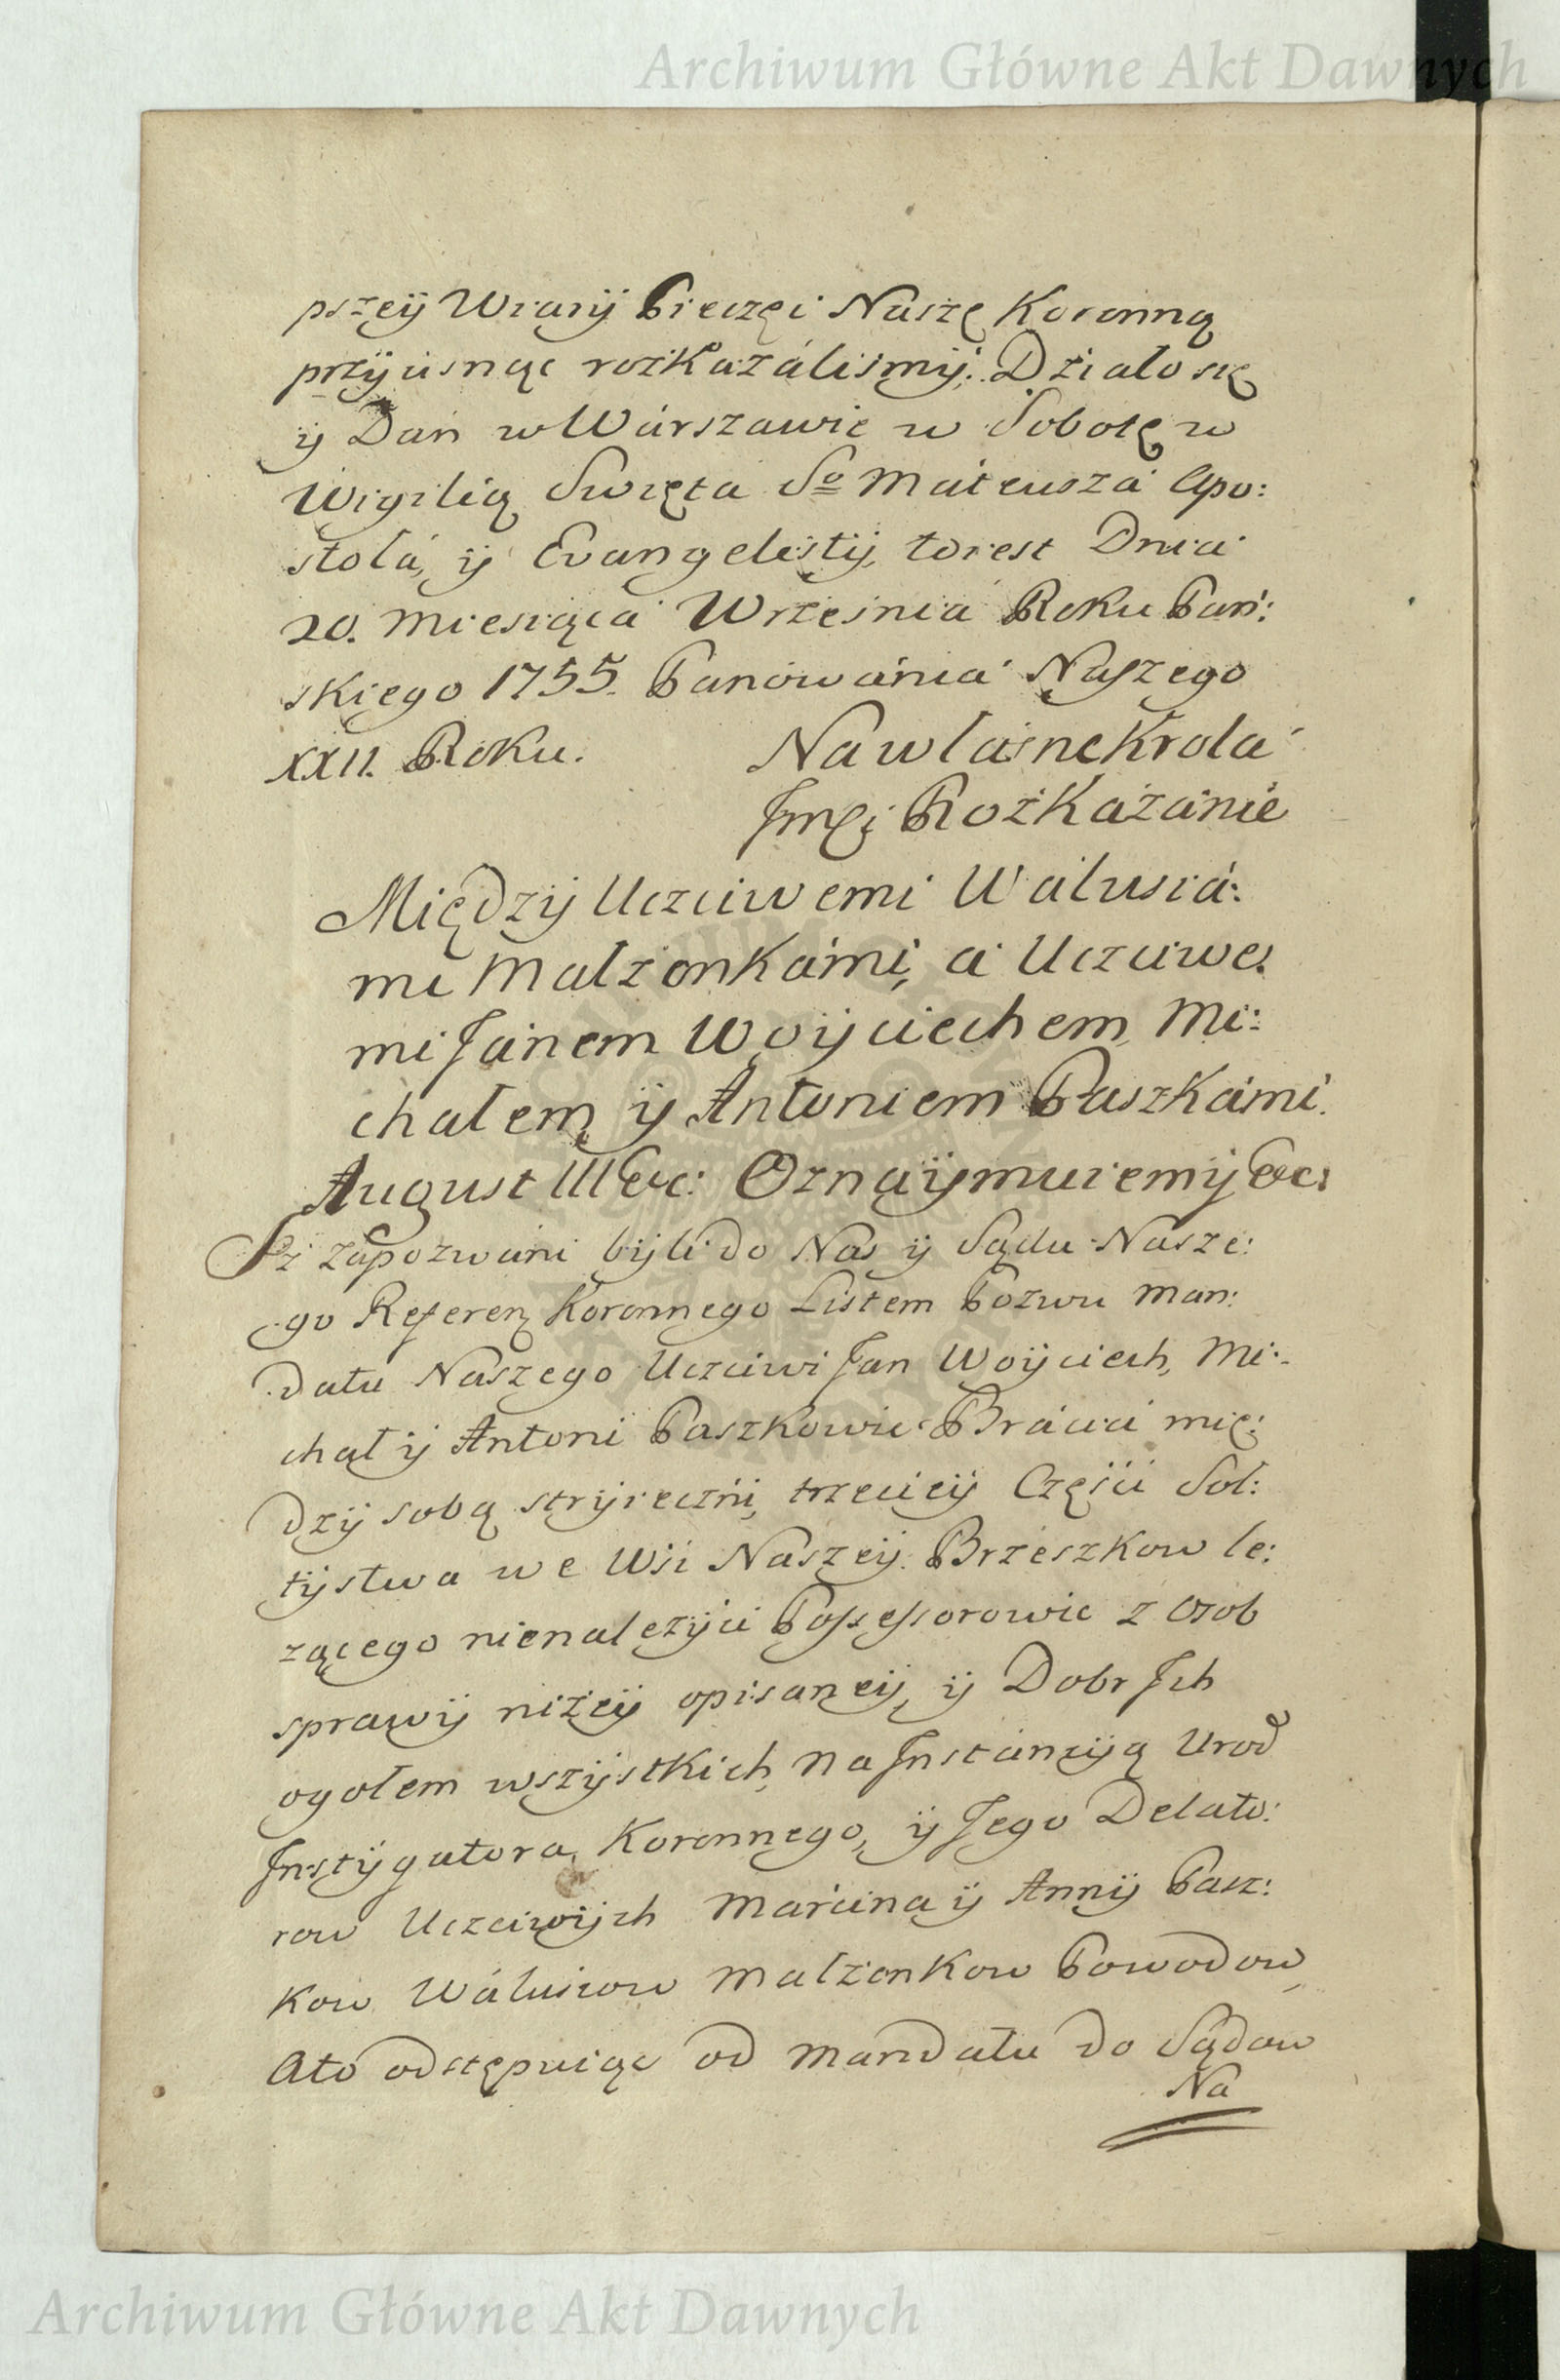 Archiwum Główne Akt Dawnych
pszey Wiary Pieczęć Naszę Koronną
przycisnąc rozkazáliśmy. Działo się
y Dan w Wárszawie w Sobotę w
Wigilią Swięta So Máteusza Apo:
stoła, y Evangelisty, to iest Dnia
20. Miesiąca Wrzesnia Roku Pań:
skiego 1755. Panowánia Naszego
XXII. Roku.
Na własne Krola
Jmci Rozkazánie
Między Uczciwemi Walusiá:
mi Małzonkámi, a Uczciwe:
mi Janem Woyciechem, Mi:
chałem y Antoniem Paszkámi.
August III &c: Oznaymuiemy &c:
Iż zapozwani byli do Nas y Sądu Nasze:
go Referen Koronnego Listem Pozwu Man:
datu Naszego Uczciwi Jan Woyciech, Mi:
chał y Antoni Paszkowie Brácia mię:
dzy sobą stryieczni, trzeciey Częsci Soł:
tystwa we Wsi Naszey Brzeszkow le:
zącego nienalezyci Possessorowie z Osob
sprawy niżey opisaney, y Dobr Ich
ogołem wszystkich, Na Instáncyą Urod
Instygatora Koronnego, y Jego Delato:
row Uczciwych Marcina y Anny Pasz:
kow Wálusiow Małzonkow Powodow
Ato odstępuiąc od Mandatu do Sądow
Na
Archiwum Główne Akt Dawnych